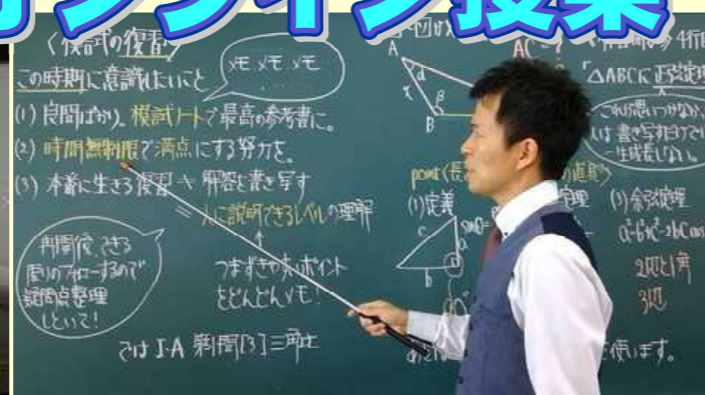 オンライン授業
〈模試の復習〉
この時期に意識したいこと
メモ メモ メモ
(1) 良問ばかり。模試ノートで最高の参考書に。
(2) 時間無制限で満点にする努力を。
(3) 本番に生きる復習 ≠ 解答を書き写す
= 人に説明できるレベルの理解
つまずきや
ポイント
をどんどんメモ!
再開後、できる
限りフォローするので
疑問点整理
しといて!
では I·A 第1問[3] 三角比
A
α
x
β
B
△ABCに正弦定理
これが思いつかなか
人は書き写すだけでは
一生成長しない。
point
(1) 定義
c
a
b
定理
(3) 余弦定理
a²=b²+c²-2bc cos
2辺と1角
3辺
使います。